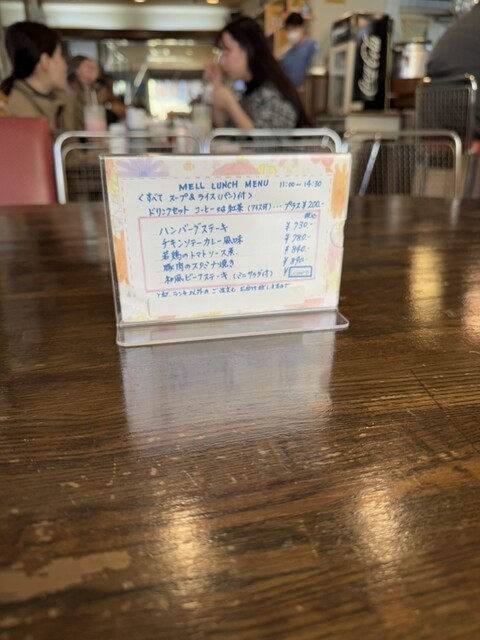 MELL LUNCH MENU 11:00〜14:30
<すべて スープ&ライス(パン)付>
ドリンクセット コーヒー又は紅茶(アイス可)… プラス¥200-
税込
ハンバーグステーキ ¥730-
チキンソテーカレー風味 ¥780-
若鶏のトマトソース煮 ¥840-
豚肉のスタミナ焼き ¥890-
和風ビーフステーキ(ミニサラダ付)
Coca-Cola